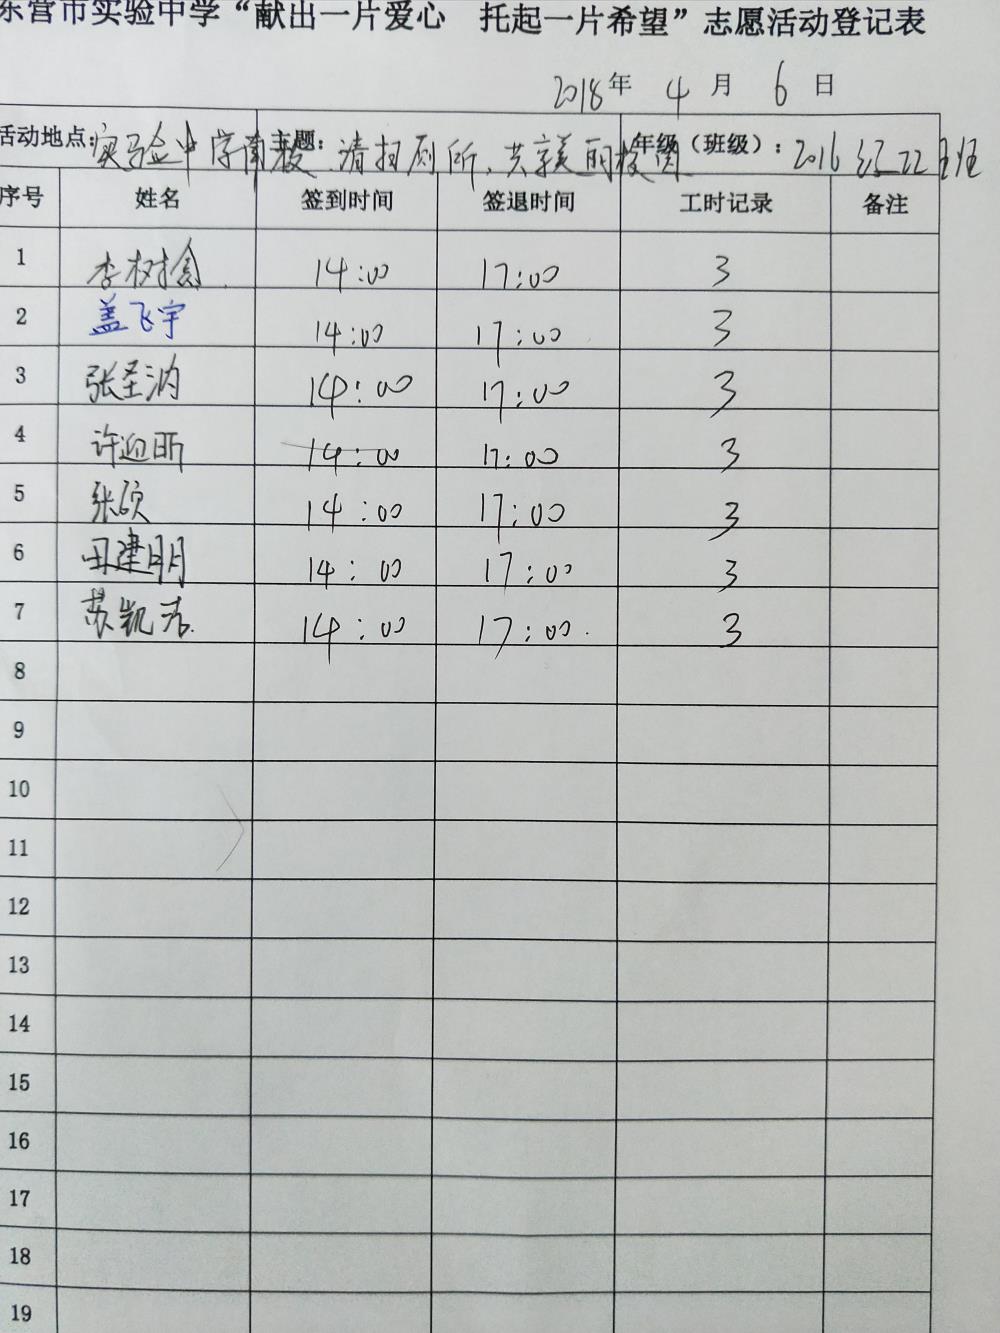 东营市实验中学“献出一片爱心　托起一片希望”志愿活动登记表
2018年 4 月 6 日
活动地点:实验中学南校 主题:清扫厕所,共享美丽校园 年级（班级）:2016级22班
序号 姓名 签到时间 签退时间 工时记录 备注
1 李树 14:00 17:00 3
2 盖飞宇 14:00 17:00 3
3 张圣 14:00 17:00 3
4 许迎昕 14:00 17:00 3
5 张硕 14:00 17:00 3
6 田建明 14:00 17:00 3
7 苏凯 14:00 17:00 3
8
9
10
11
12
13
14
15
16
17
18
19